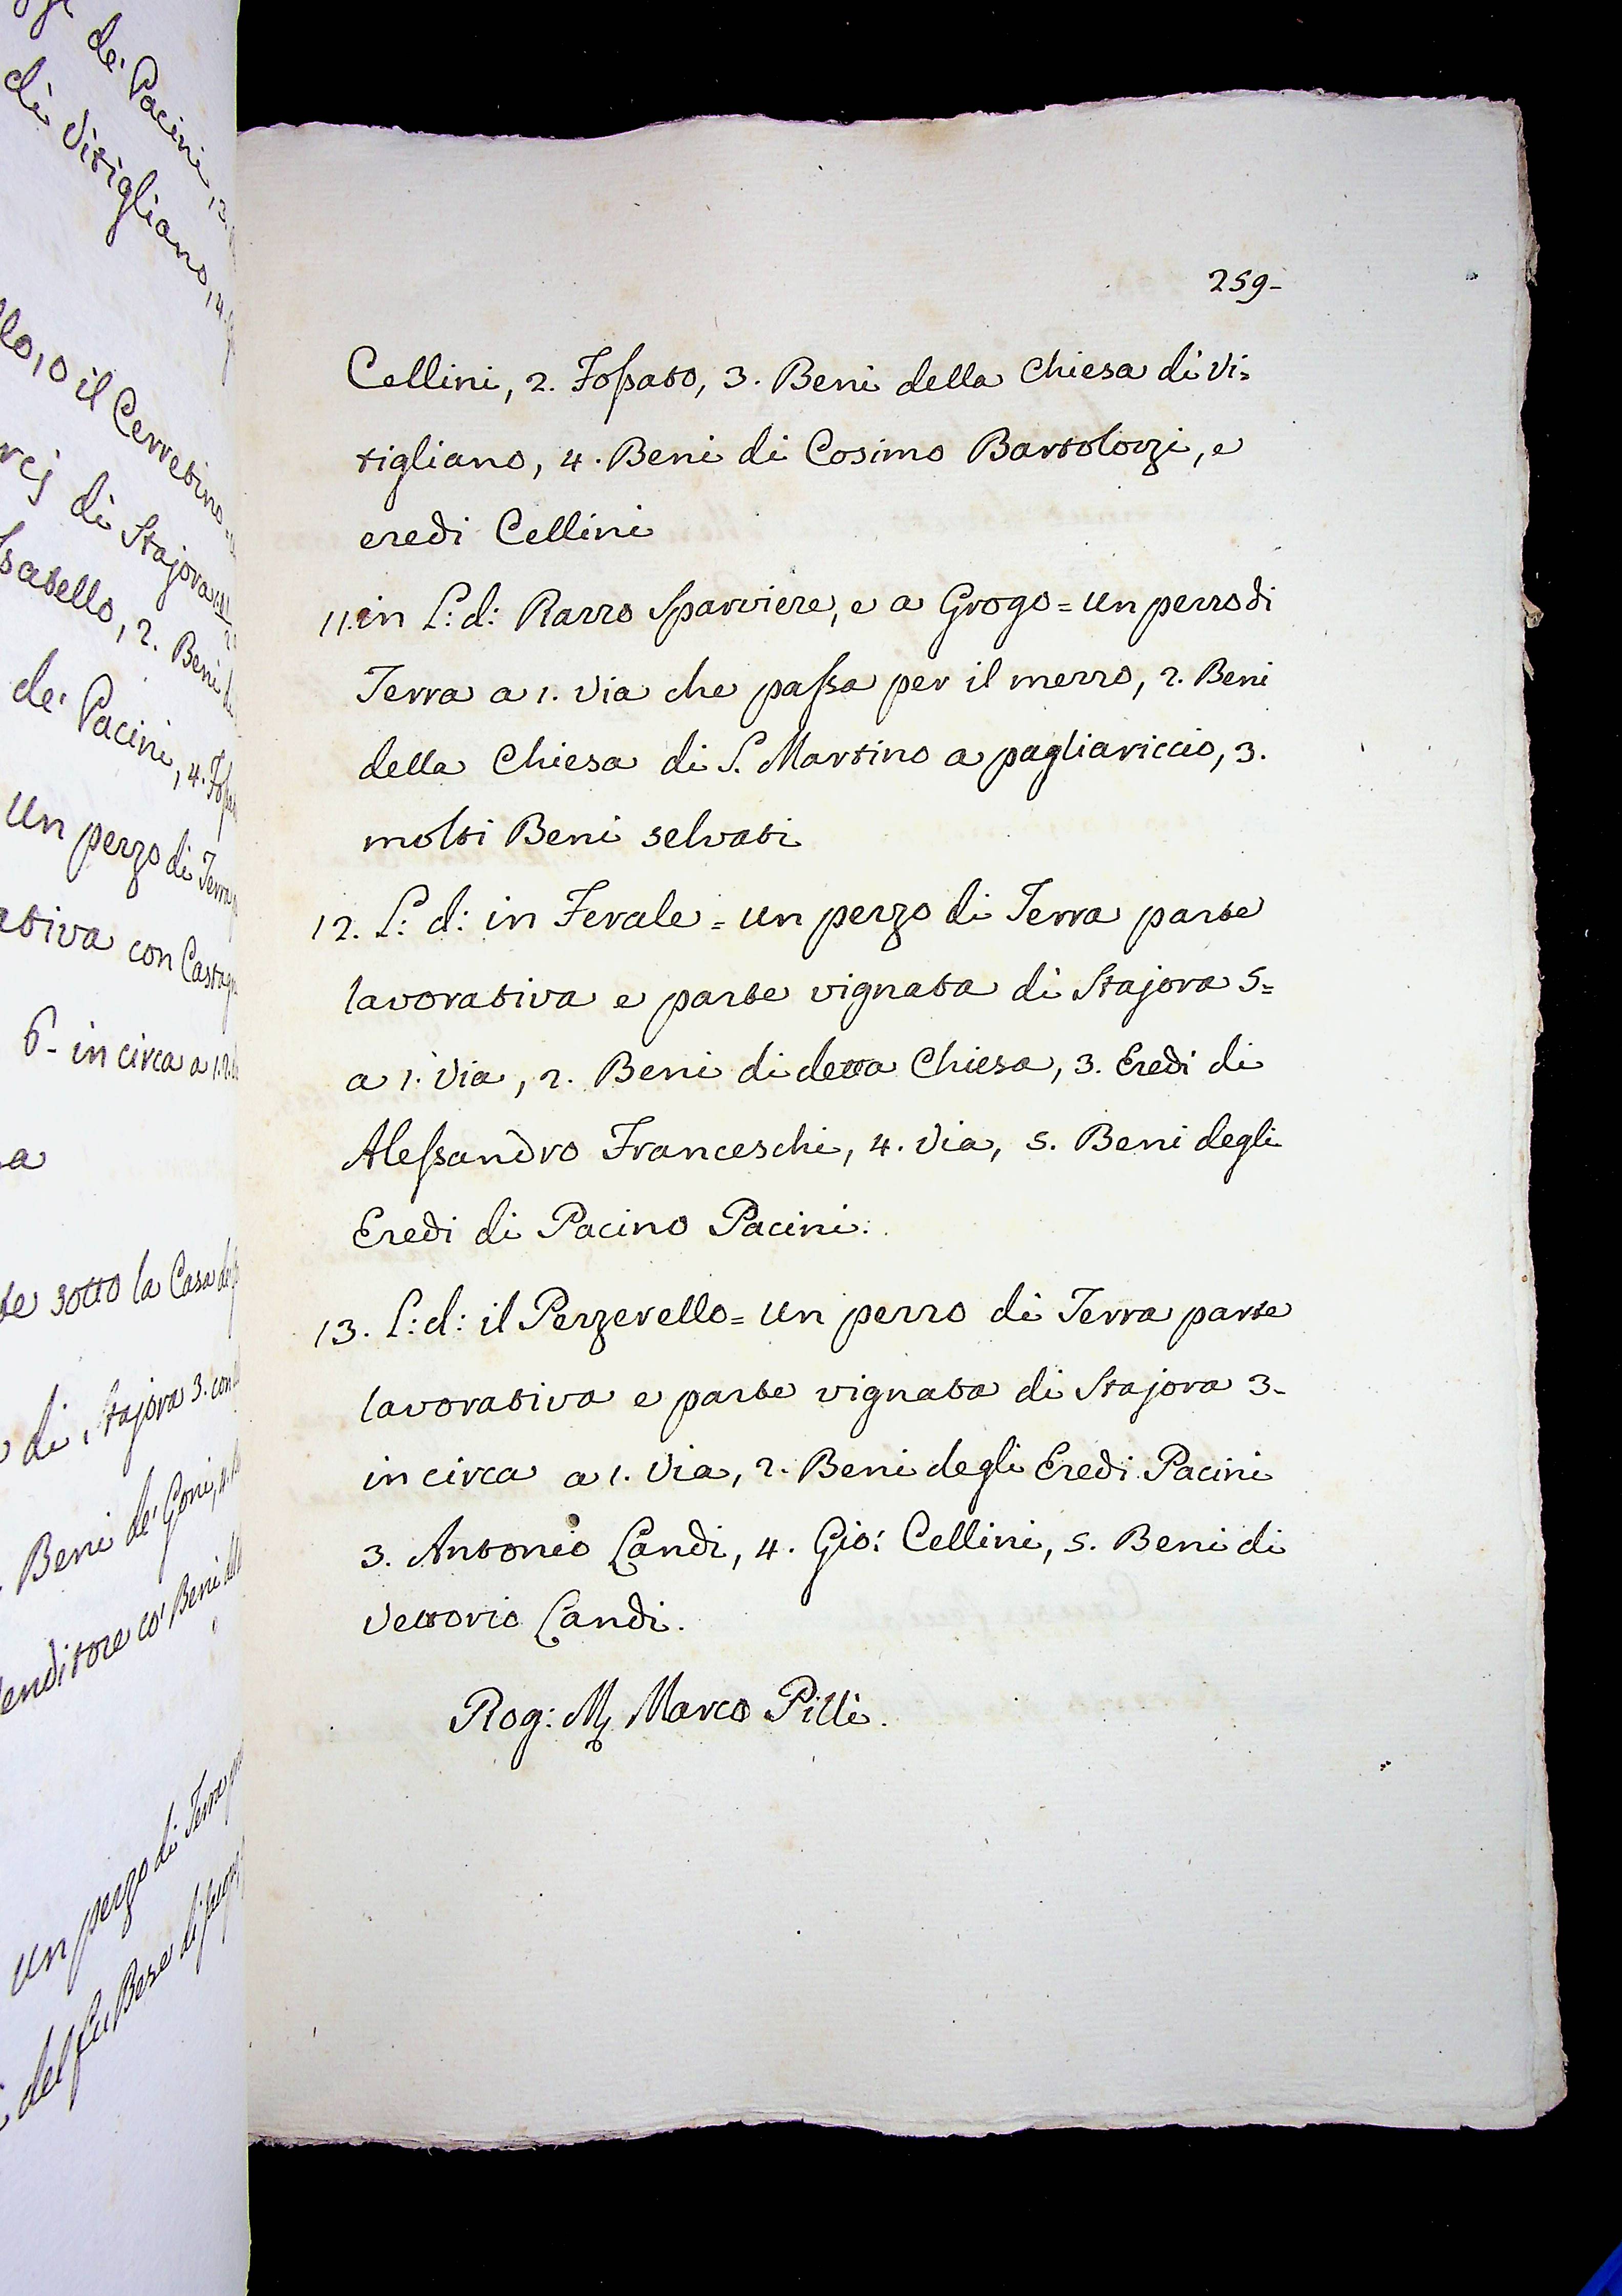 259-
Cellini, 2. Fossato, 3. Beni della Chiesa di Vi=
tigliano, 4. Beni di Cosimo Bartolozzi, e
eredi Cellini
11. in L: d: Razzo Sparviere, e a Grogo = un pezzo di
Terra a 1. Via che passa per il mezzo, 2. Beni
della Chiesa di S. Martino a pagliariccio, 3.
molti Beni selvati
12. L: d: in Ferale = un pezzo di Terra parte
lavorativa e parte vignata di Stajora 5=
a 1. Via, 2. Beni di detta Chiesa, 3. Eredi di
Alessandro Franceschi, 4. Via, 5. Beni degli
Eredi di Pacino Pacini.
13. L: d: il Pezzerello = un pezzo di Terra parte
lavorativa e parte vignata di Stajora 3-
in circa a 1. Via, 2. Beni degli Eredi Pacini
3. Antonio Landi, 4. Gio: Cellini, 5. Beni di
Vettorio Landi.
Rog: M. Marco Pilli.
de' Pacini, 3.
di Vitigliano, 4.
o il Cerretino
di Stajora
2. Beni
de' Pacini, 4.
un pezzo di Terra
con
6- in circa a 1. 2.
sotto la Casa
di Stajora 3. con
Beni de' Goni, 4.
co' Beni
un pezzo di Terra
del fu